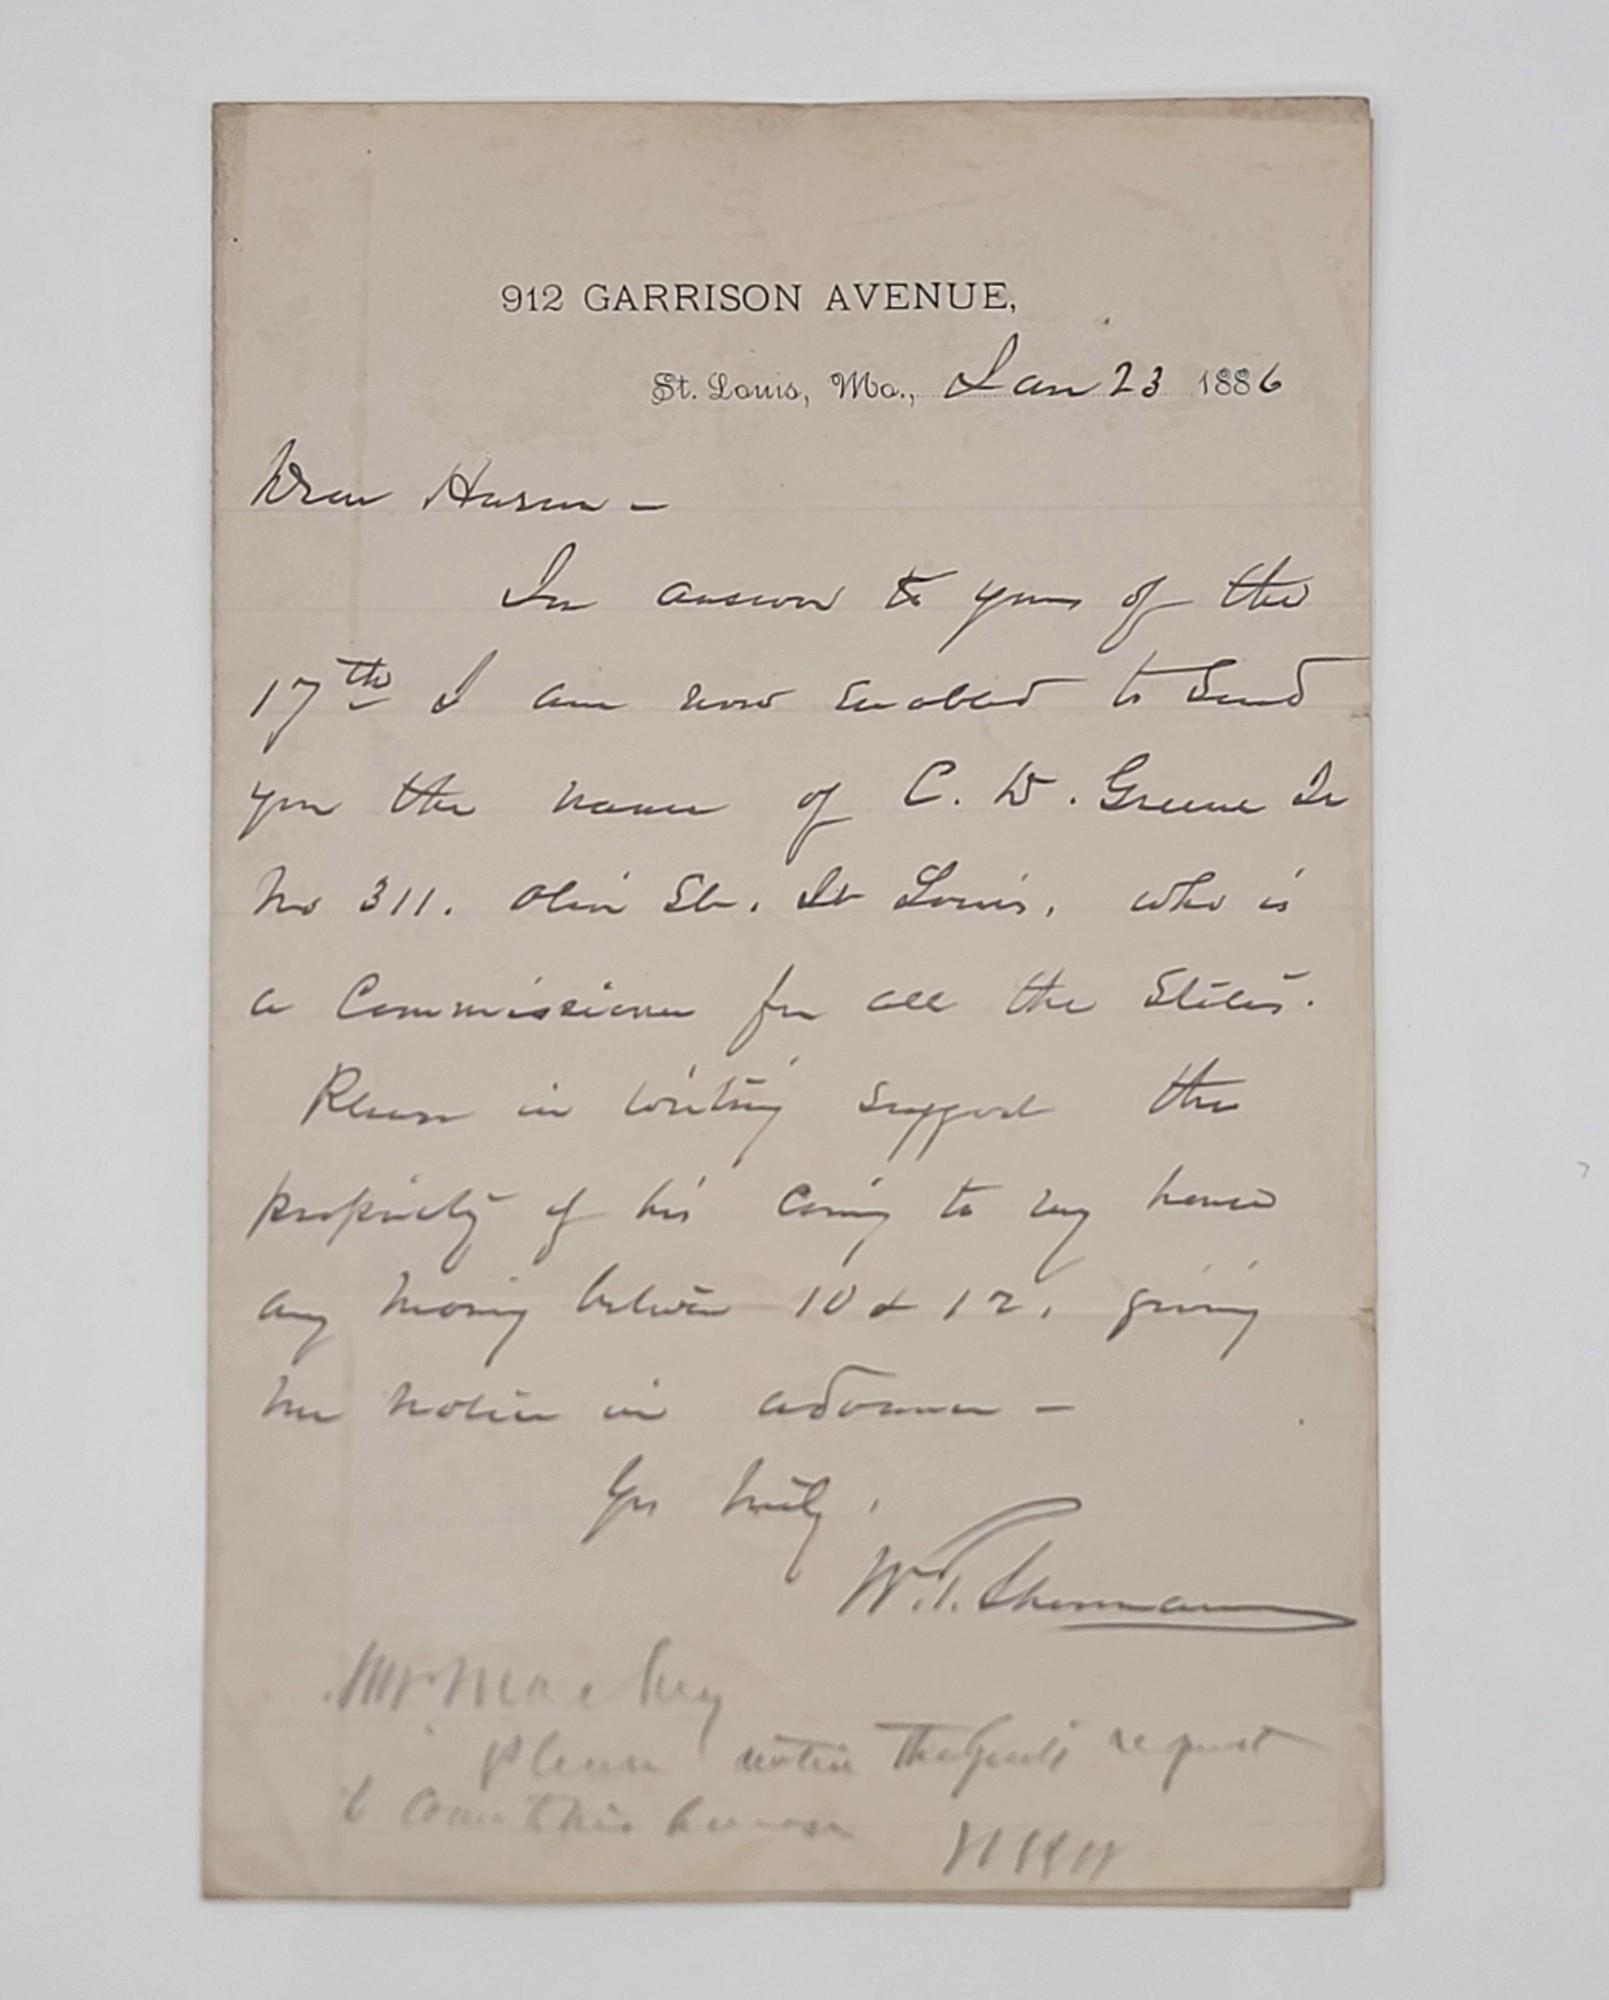 912 GARRISON AVENUE,
St. Louis, Mo., Jan 23 1886
Dear
In answer to yours of the
17th I am now enabled to send
you the name of C. W. Greene Jr
No 311. Olive St. St Louis, who is
a Commissioner for all the States.
Please in writing suggest the
propriety of his coming to my house
any morning between 10 & 12, giving
me notice in advance —
Yrs truly,
W. T. Sherman
Mr Mackey
Please notice the Genls request
to come to his house